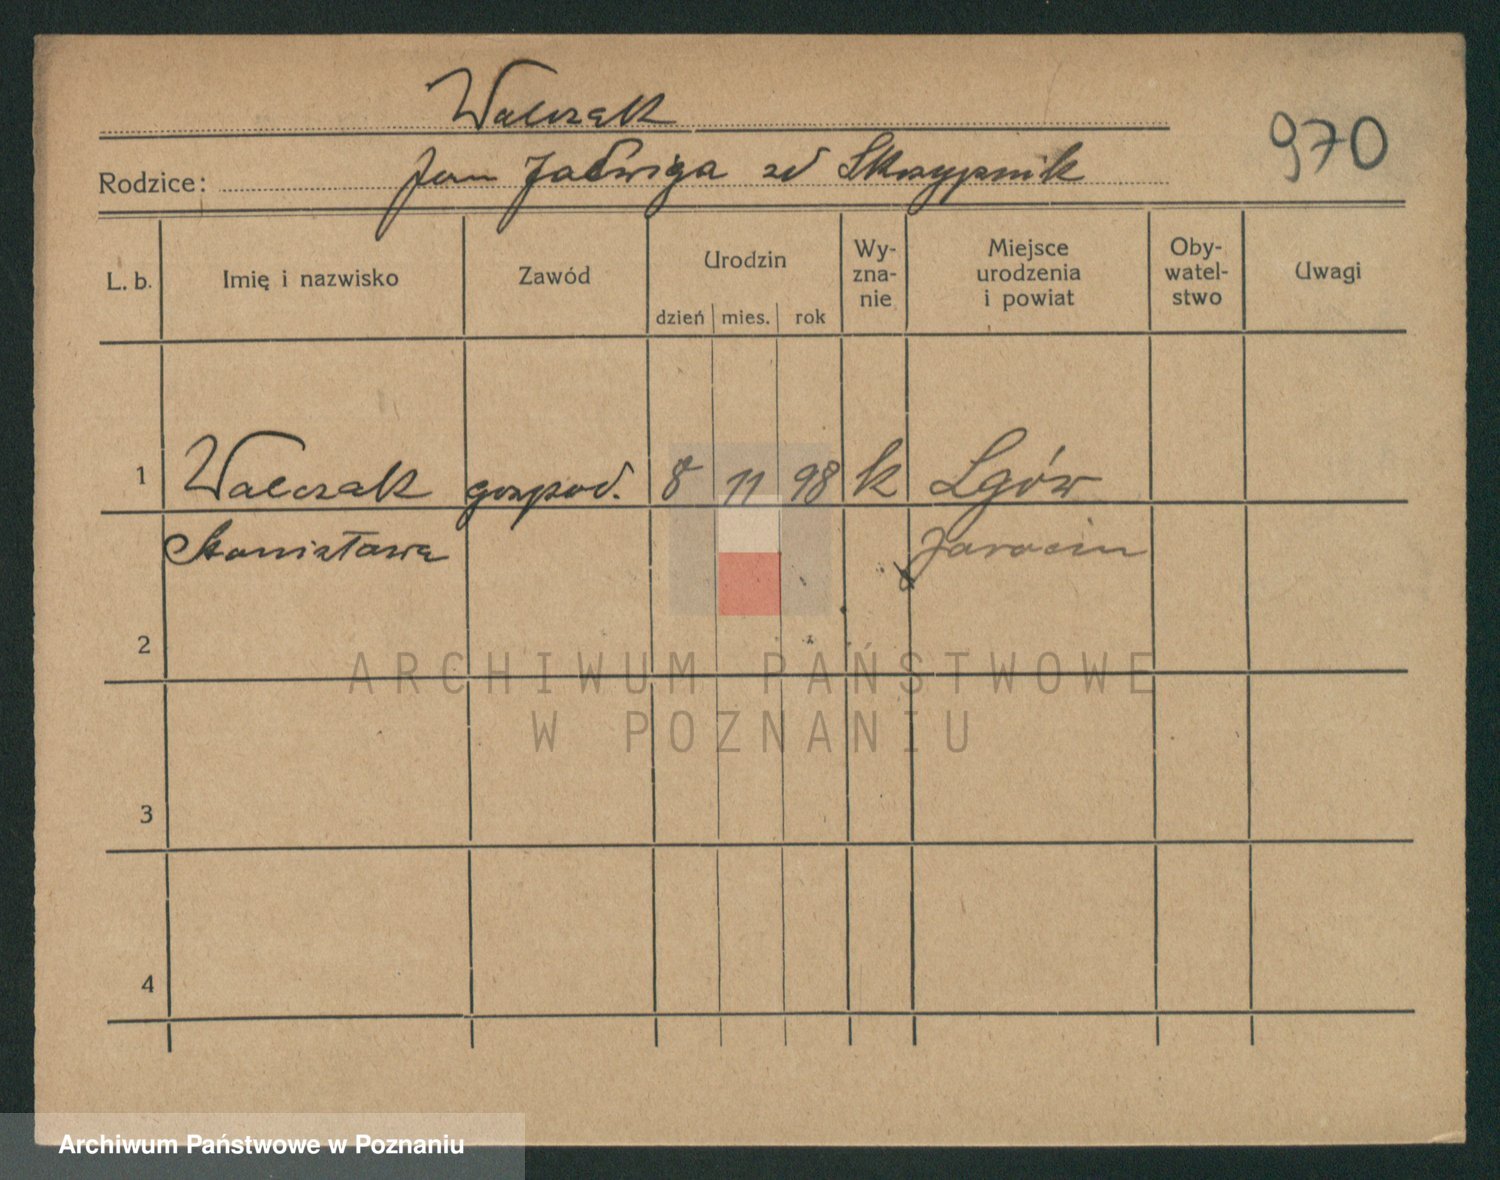 Walczak
970
Rodzice: Jan Jadwiga zd Skrzypnik
L. b. Imię i nazwisko Zawód Urodzin dzień mies. rok Wy-zna-nie Miejsce urodzenia i powiat Oby-watel-stwo Uwagi
1 Walczak gospod. 8 11 98 k Lgów
Stanisława Jarocin
2
ARCHIWUM PAŃSTWOWE
W POZNANIU
3
4
Archiwum Państwowe w Poznaniu